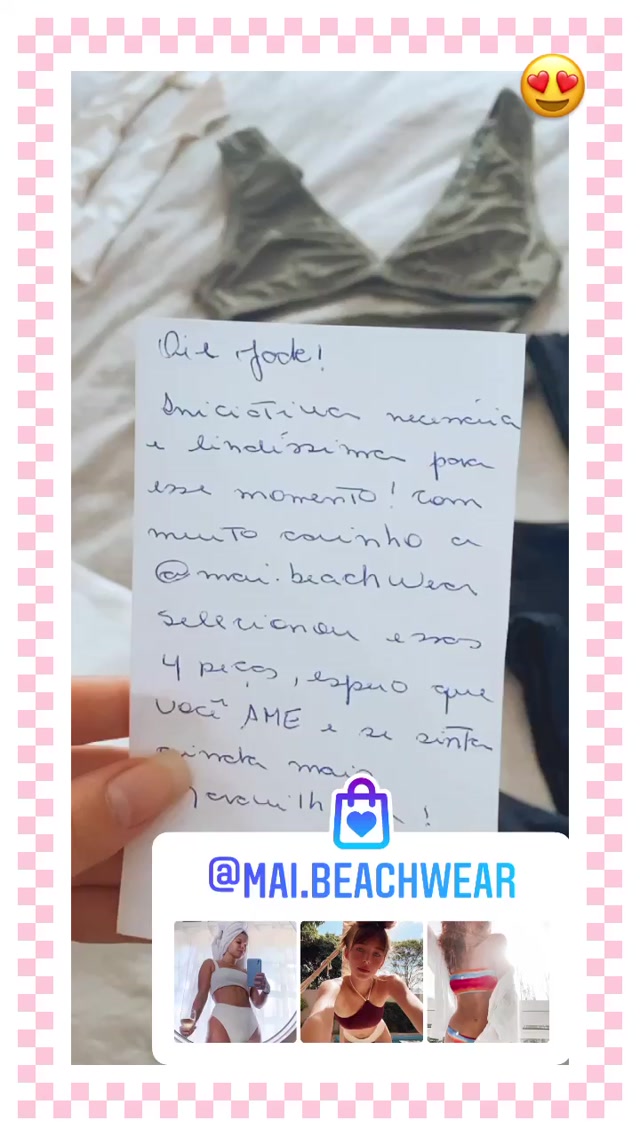 Oie Jade!
Iniciativa necessária
e lindíssima para
esse momento! Com
muito carinho a
@mai.beachwear
selecionou essas
4 peças, espero que
você AME e se sinta
ainda mais
!
@MAI.BEACHWEAR